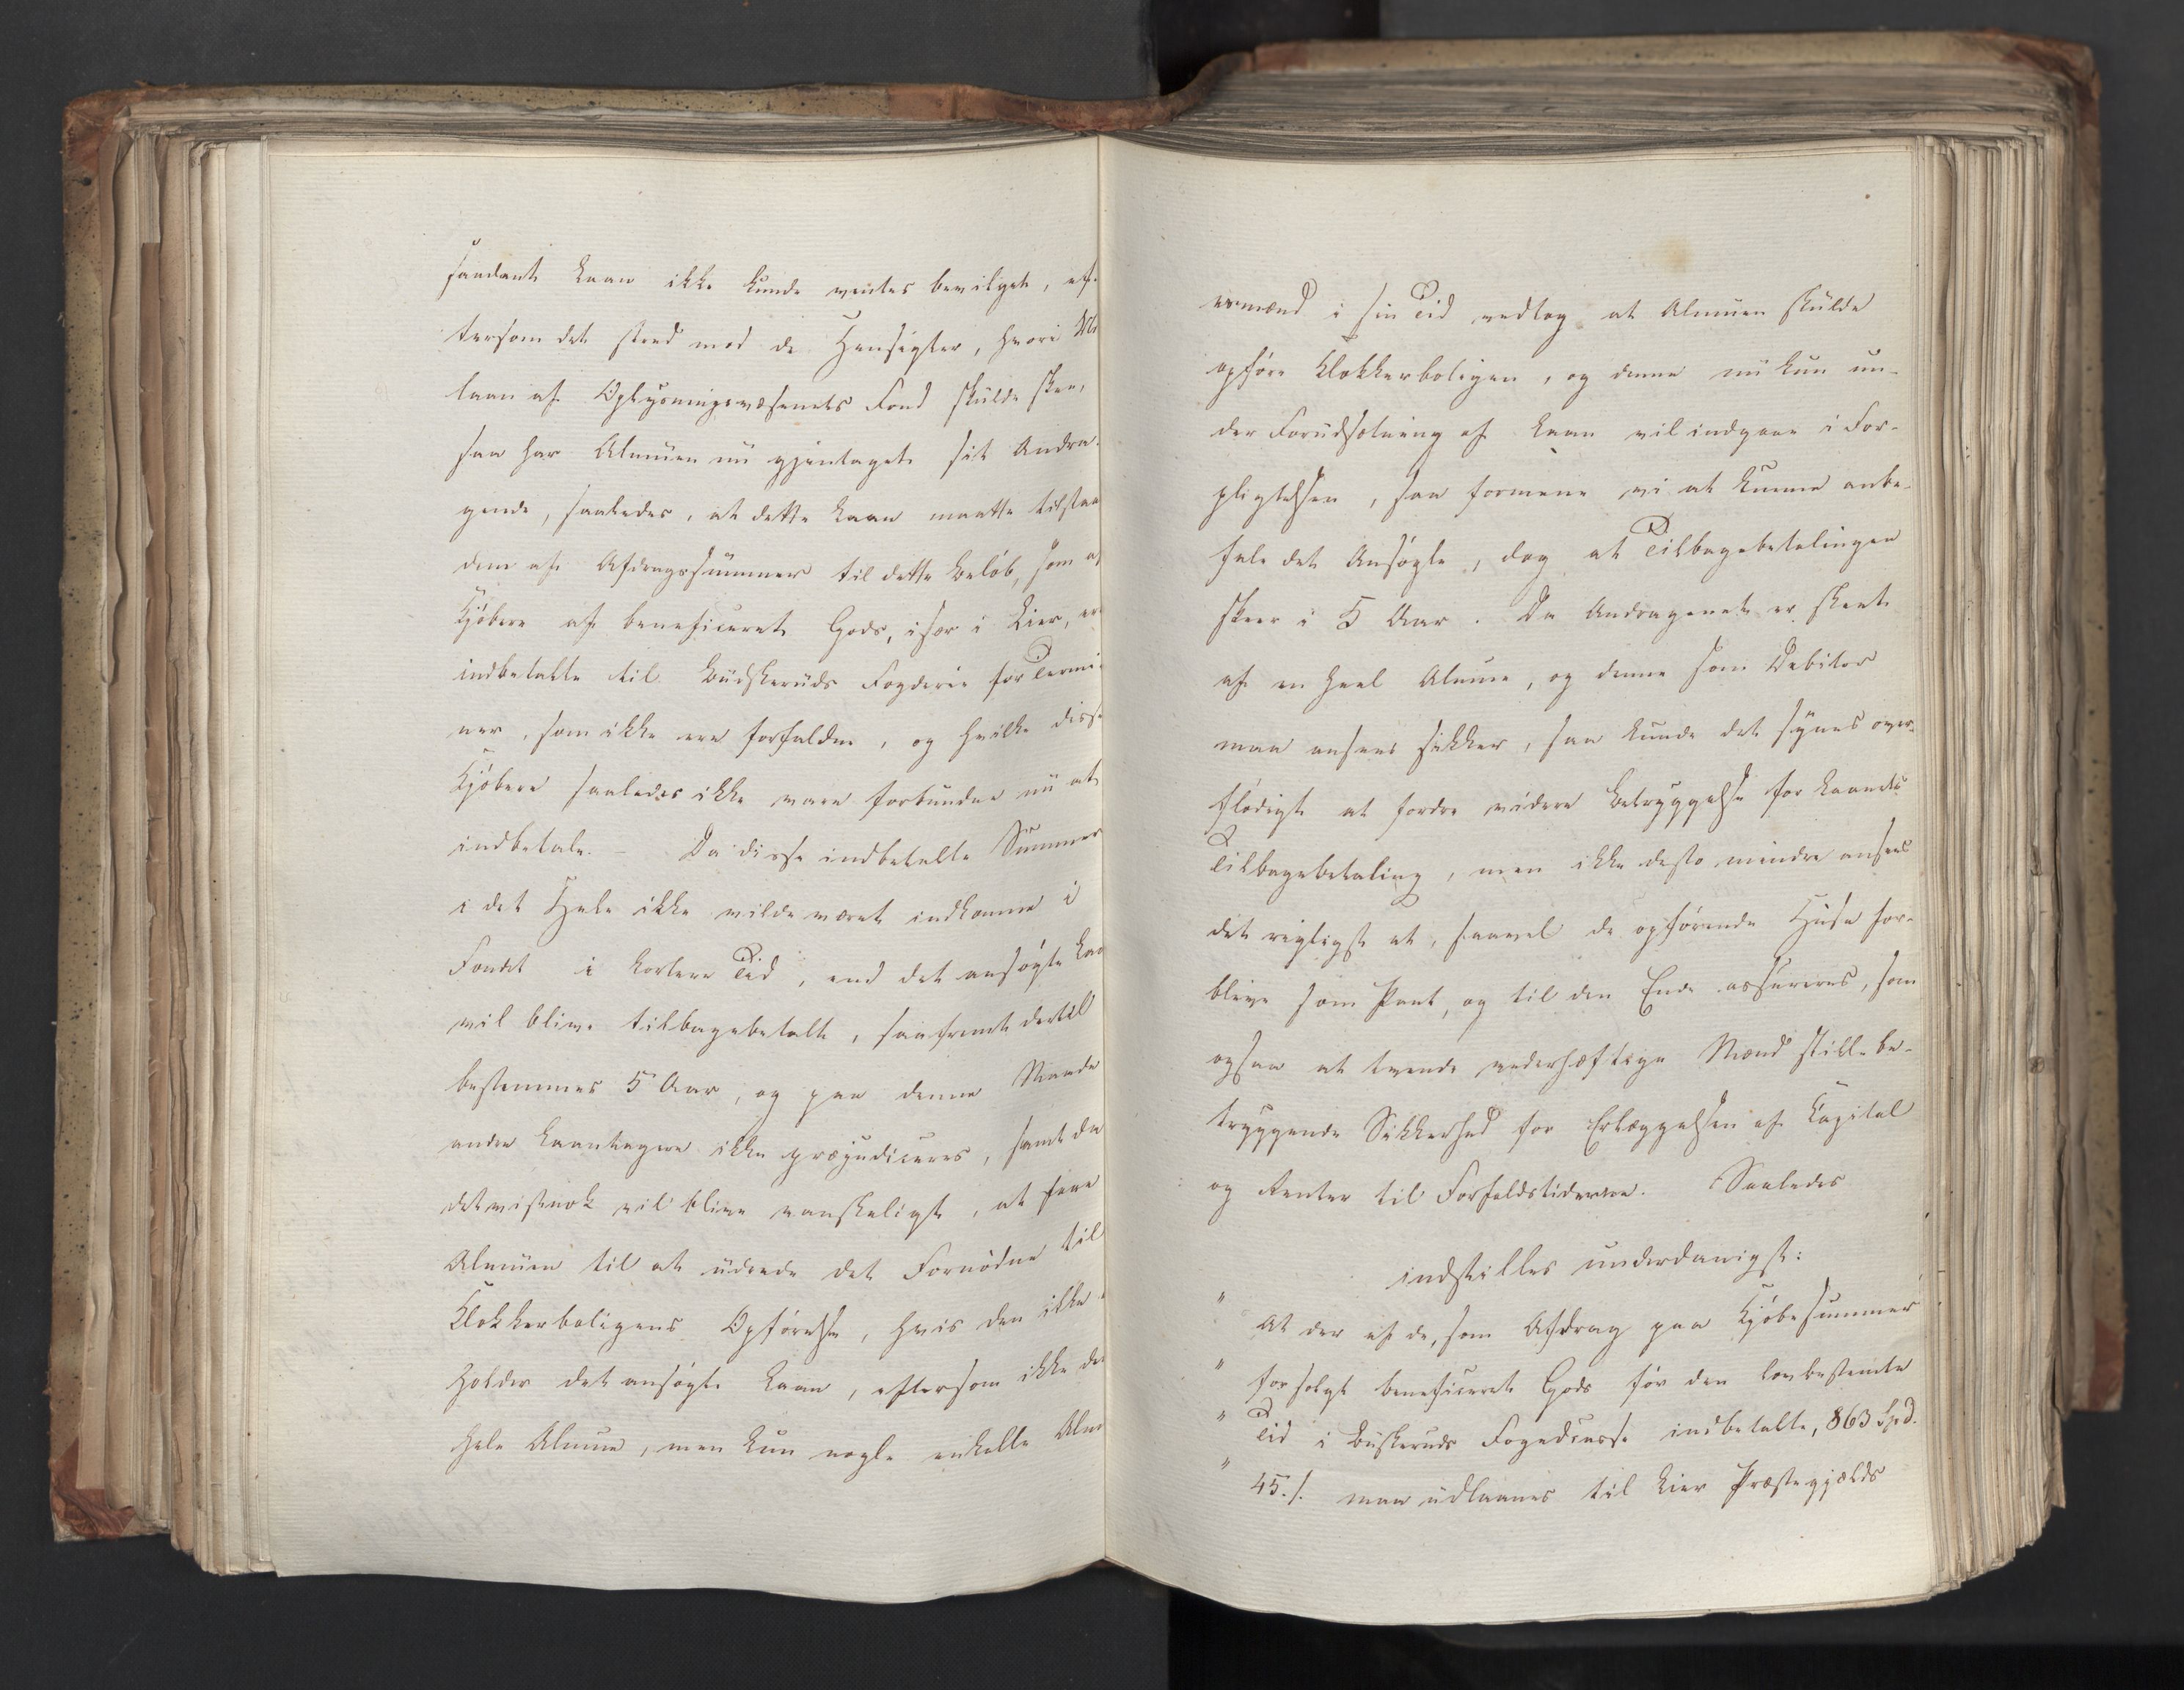 saadant Laan ikke kunde ventes bevilget, ef-
tersom det stred mod de Hensigter, hvori Ud
laan af Oplysningsvæsenets Fond skulde skee,
saa har Almuen nu gjentaget sit Andra-
gende, saaledes, at dette Laan maatte tilstaa
dem af Afdragssummer til dette Beløb, som af
Kjøbere af beneficeret Gods, især i Lier, ere
indbetalte til Buskeruds Fogderie for Termi-
ner, som ikke ere forfaldne, og hvilke disse
Kjøbere saaledes ikke vare forbundne nu at
indbetale. – Da disse indbetalte Summer
i det Hele ikke vilde været indkomne i
Fondet i kortere Tid, end det ansøgte Laa
vil blive tilbagebetalt, saafremt dertil
bestemmes 5 Aar, og paa denne Maade
andre Laantagere ikke præjudiceres, samt da
det vistnok vil blive vanskeligt, at faae
Almuen til at udrede det Fornødne til
Klokkerboligens Opførelse, hvis den ikke er
holder det ansøgte Laan, eftersom ikke den
hele Almue, men kun nogle enkelte Alm
uesmænd i sin Tid vedtog at Almuen skulde
opføre Klokkerboligen, og denne nu kun un-
der Forudsætning af Laan vil indgaae i For-
pligtelsen, saa formene vi at kunne anbe-
fale det Ansøgte, dog at Tilbagebetalingen
skeer i 5 Aar. Da Andragenet er skeet
af en heel Almue, og denne som Debitor
maa ansees sikker, saa kunde det synes over-
flødigt at fordre videre Betryggelse for Laanets
Tilbagebetaling, men ikke desto mindre ansees
det rigtigst at, saavel de opførende Huse for-
blive som Pant, og til den Ende assureres, som
ogsaa at tvende vederhæftige Mænd stille be-
tryggende Sikkerhed for Erlæggelsen af Capital
og Renter til Forfaldstiderne. Saaledes
indstilles underdanigst:
" At der af de, som Afdrag paa Kjøbesummer
" for solgt beneficeret Gods før den lovbestemte
" Tid i Buskeruds Fogedcasse indbetalte, 863 Spd.
" 45 s. maa udlaanes til Lier Præstegjælds